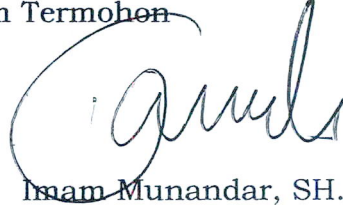 n Termohon
Imam Munandar, SH.